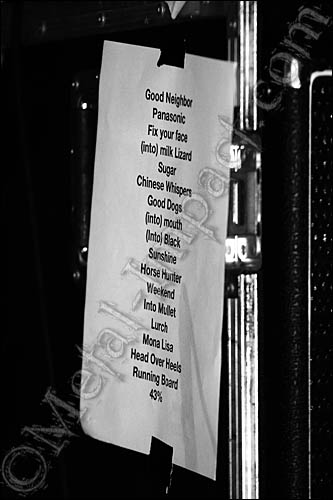 Good Neighbor
Panasonic
Fix your face
(into) milk Lizard
Sugar
Chinese Whispers
Good Dogs
(into) mouth
(Into) Black
Sunshine
Horse Hunter
Weekend
Into Mullet
Lurch
Mona Lisa
Head Over Heels
Running Board
43%
©Metal-Impact.com